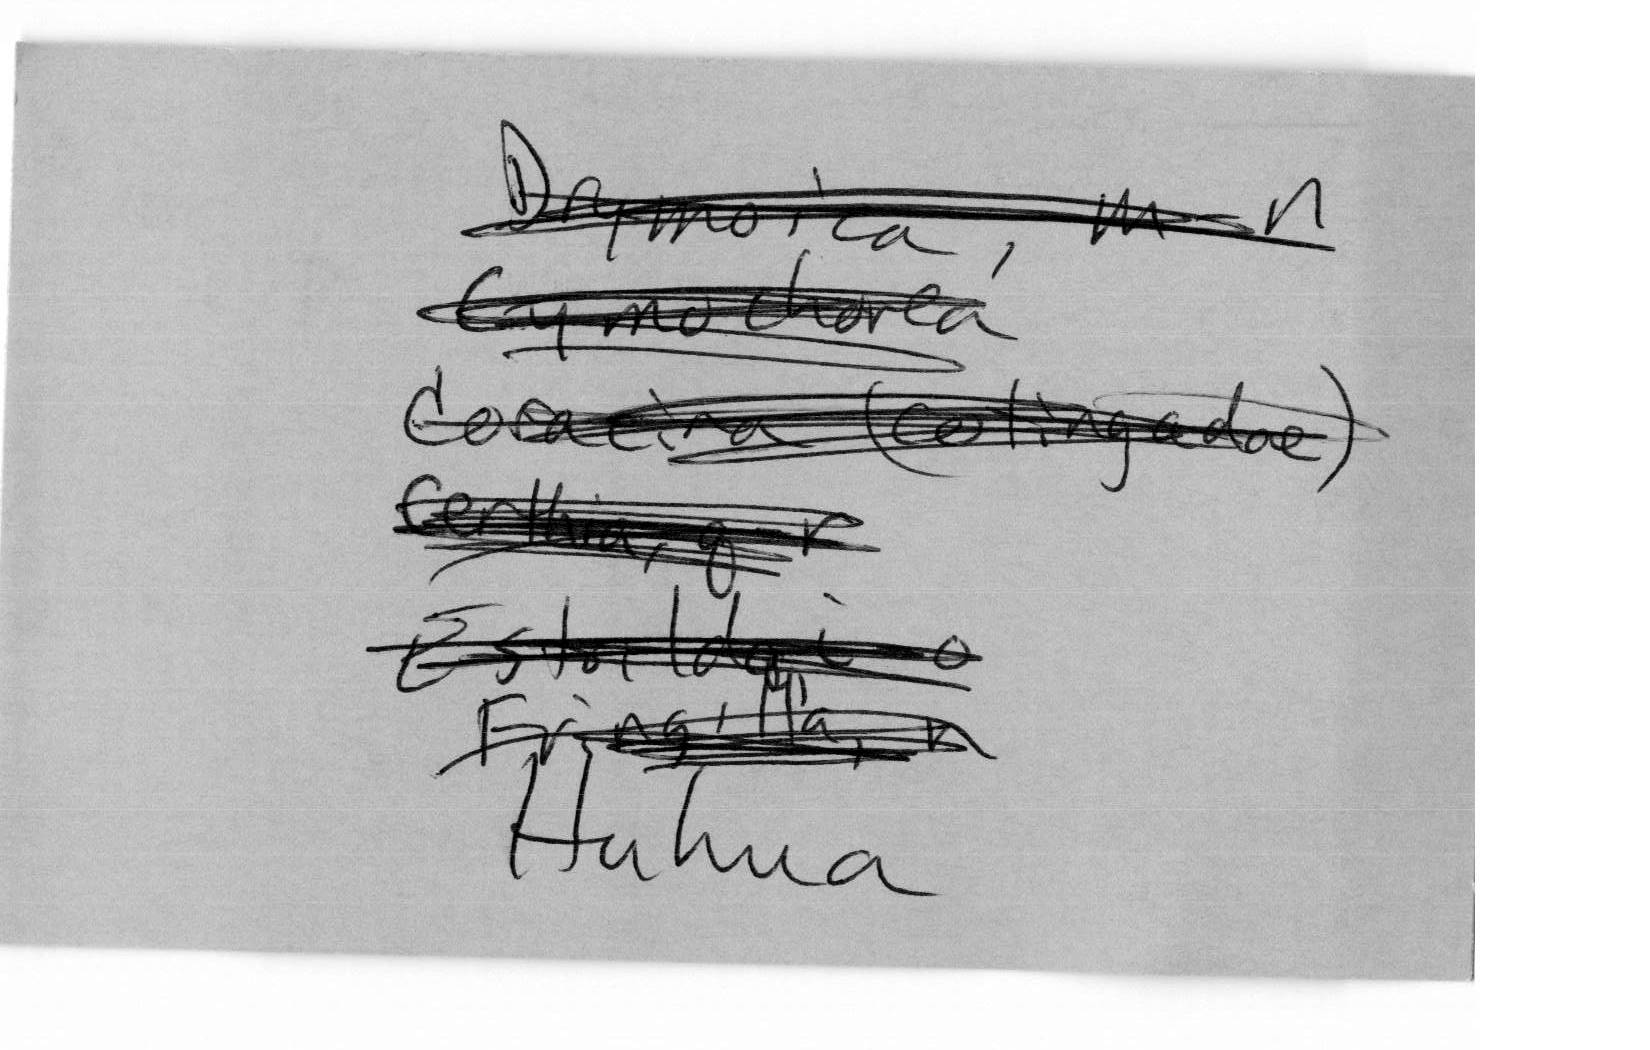 Drymoica, m–n
Cymochorea
Coracina (cotingadae)
Certhia, q–r
Fringilla, n
Huhua